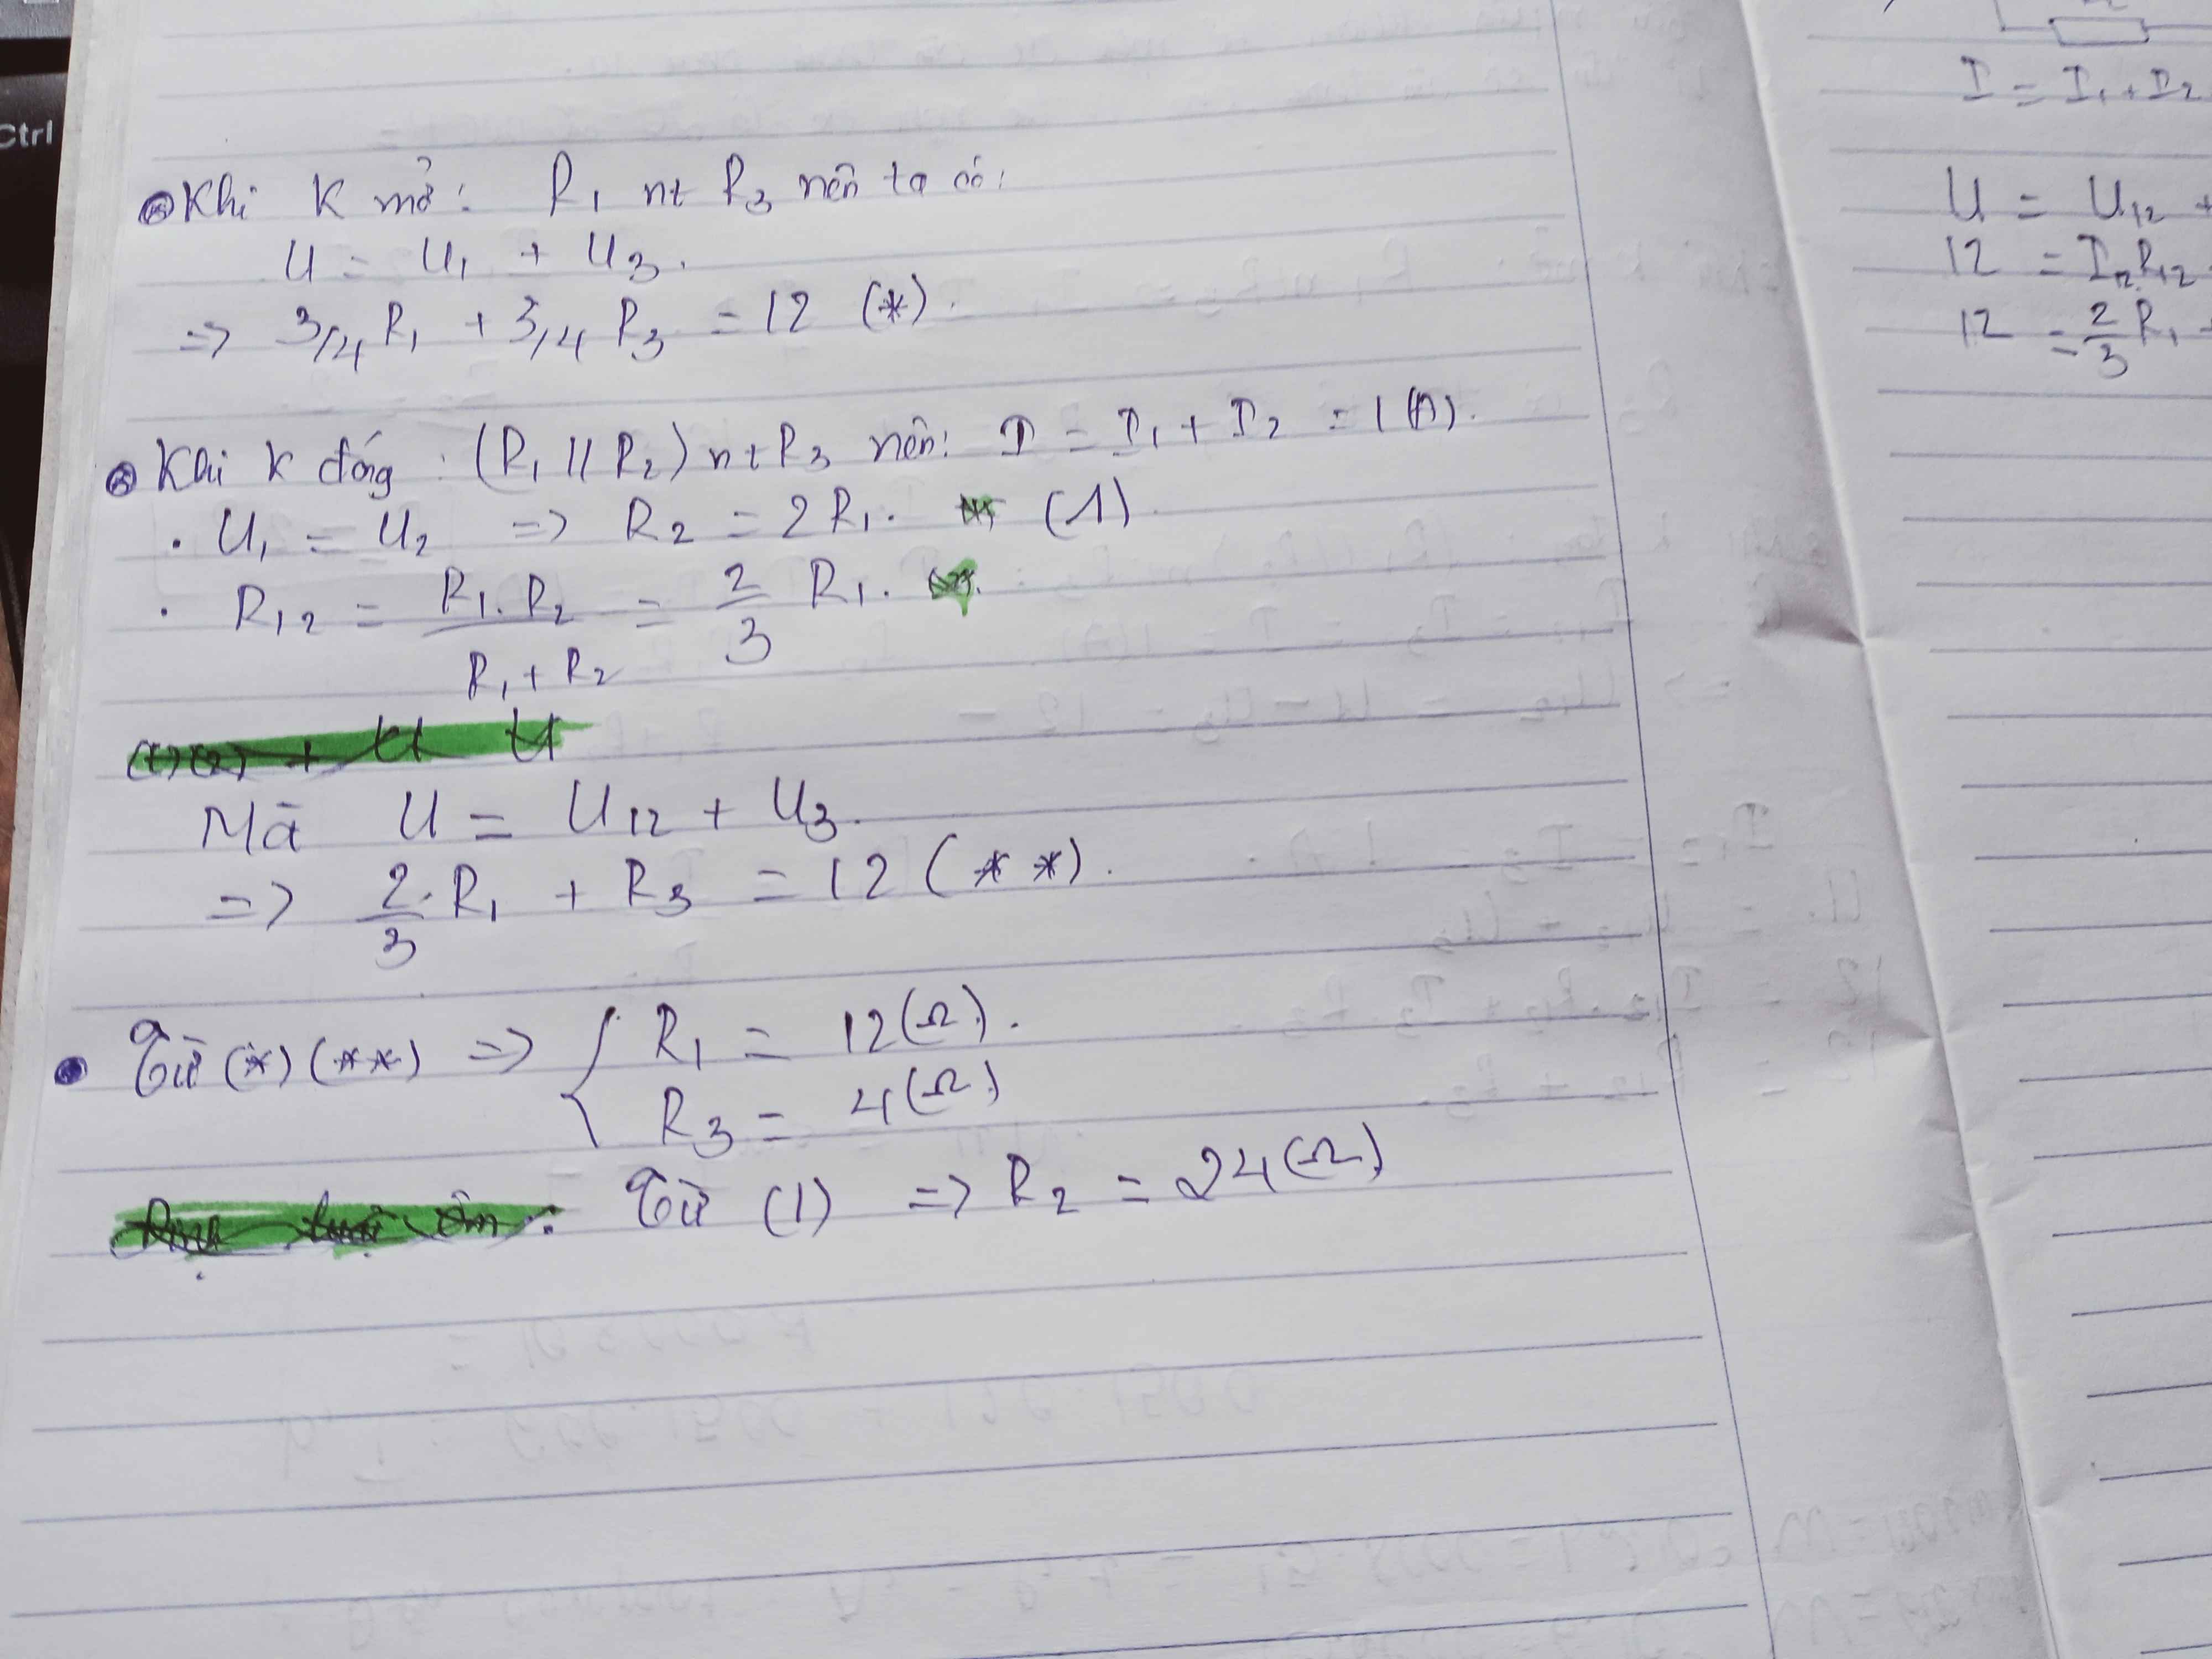 Ctrl
Khi K mở: R₁ nt R₃ nên ta có:
U = U₁ + U₃.
=> 3/4 R₁ + 3/4 R₃ = 12 (*).
Khi K đóng : (R₁ // R₂) nt R₃ nên: I = I₁ + I₂ = 1 (A).
• U₁ = U₂ => R₂ = 2R₁. (1)
• R₁₂ = R₁.R₂ / R₁+R₂ = 2/3 R₁.
(1)(2) + U U
Mà U = U₁₂ + U₃.
=> 2/3.R₁ + R₃ = 12 (**).
• Từ (*) (**) => { R₁ = 12(Ω).
R₃ = 4(Ω)
Từ (1) => R₂ = 24(Ω)
I = I₁ + I₂
U = U₁₂ +
12 = I₁₂R₁₂
12 = 2/3 R₁